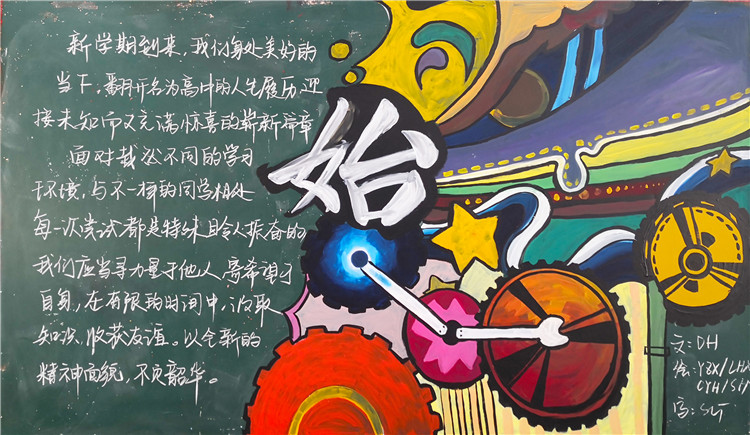 新学期到来，我们身处美好的
当下，翻开名为高中的人生履历，迎
接未知而又充满惊喜的崭新篇章
面对截然不同的学习
环境，与不一样的同学相处
每一次尝试都是特殊且令人振奋的
我们应当寻力量于他人，寄希望于
自身，在有限的时间中，汲取
知识、收获友谊。以全新的
精神面貌，不负韶华。
始
文：DH
绘：YZX/LHX
CYH/SH
写：SLT